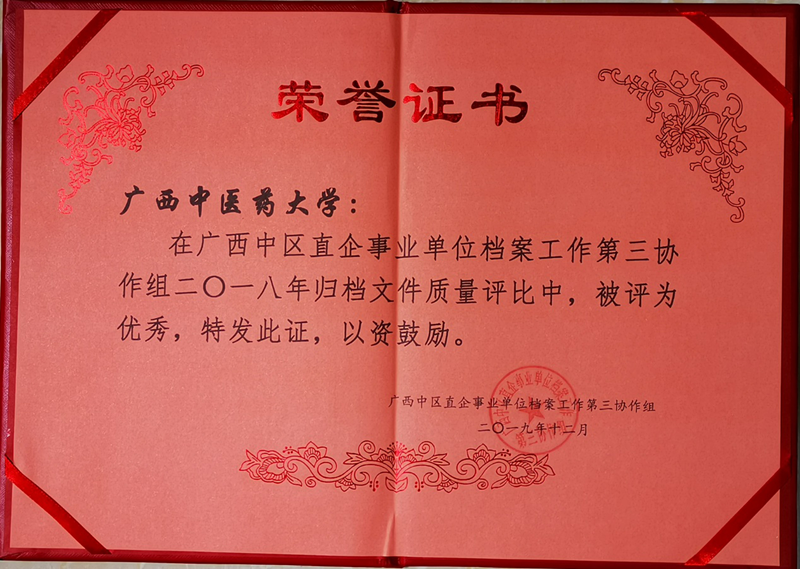 荣誉证书
广西中医药大学：
在广西中区直企事业单位档案工作第三协
作组二〇一八年归档文件质量评比中，被评为
优秀，特发此证，以资鼓励。
广西中区直企事业单位档案工作第三协作组
二〇一九年十二月